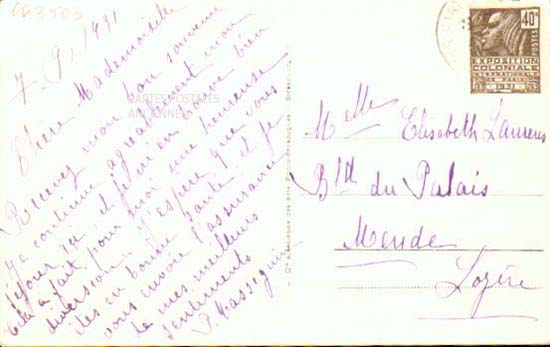 063503
7.9.1931
Chère Mademoiselle
Recevez mon bon souvenir
Je continue agréablement mon
séjour ici et j'en arrive bien
Cela a fait pour moi une heureuse
diversion. J'espère que vous
êtes en bonne santé et je
vous envoie l'assurance
de mes meilleurs
sentiments
P. Cassignin
CARTES POSTALES
ANCIENNES
40c
POSTES
EXPOSITION
COLONIALE
INTERNATIONALE
DE PARIS
1931
Melle Elisabeth Laurens
Bld du Palais
Mende
Lozère